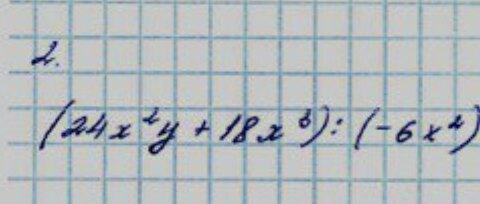 2.
(24x²y + 18x³) : (-6x²)